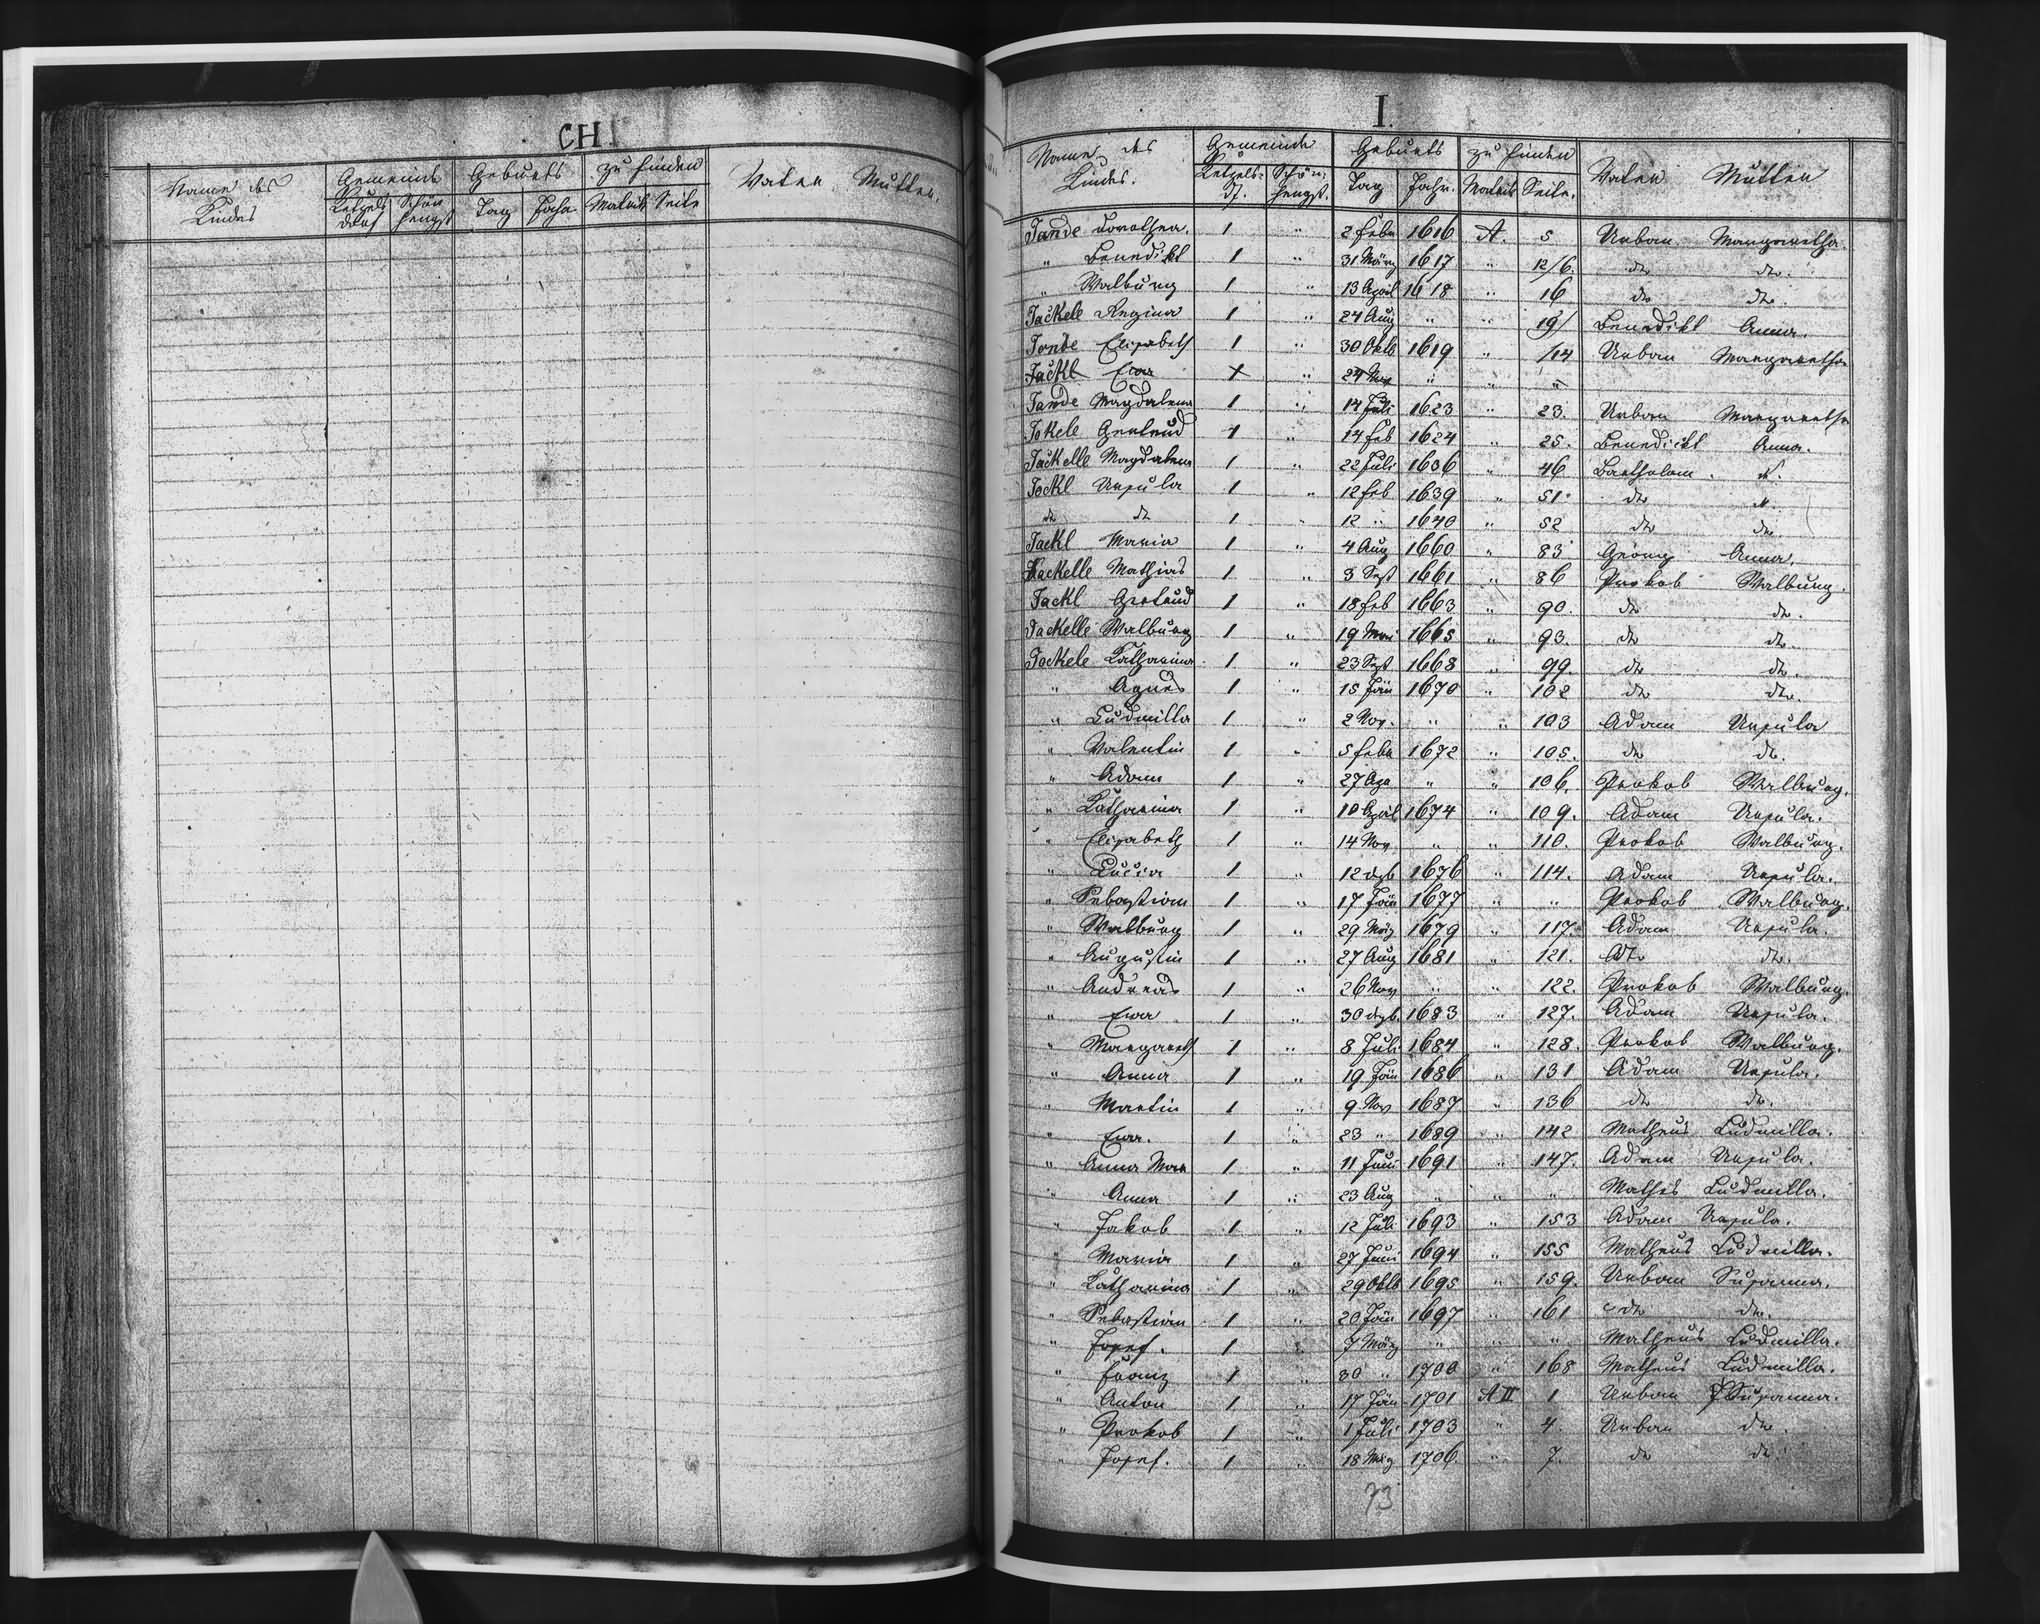 CH
Name des Kindes Gemeinde Geburts zu finden Vater Mutter.
Ketzelsdorf Schönhengst Tag Jahr Matrik Seite
I.
Name des Kindes. Gemeinde Geburts zu finden Vater Mutter
Ketzelsdf. Schönhengst. Tag Jahr. Matrik Seite.
Jande Dorothea. 1 " 2 Febr 1616 A. 5 Urban Margaretha.
" Benedikt 1 31 März 1617 " 12/6. dto dto.
" Walburg 1 " 13 April 1618 " 16 dto dto.
Jackele Regina 1 " 24 Aug " " 19/ Benedikt Anna.
Jonde Elisabeth 1 " 30 Oktb 1619 " /14 Urban Margaretha
Jackl Eva + " 24 Nov " " "
Jande Magdalena 1 " 14 Juli 1623 " 23. Urban Margaretha
Jokele Gertrud 1 " 14 Feb 1624 " 25. Benedickt Anna.
Jackelle Magdalena 1 " 22 Juli 1636 " 46 Bartholom. ".
Jockl Ursula 1 " 12 Feb 1639 " 51. dto ".
dt dt 1 " 12 " 1640 " 52 dto dto
Jackl Maria 1 " 4 Aug 1660 " 83 Georg Anna.
Jackelle Mathias 1 " 3 Sept 1661 " 86 Prokob Walburg.
Jackl Gertrud 1 " 18 Feb 1663 " 90. dto dto.
Jackelle Walburg 1 " 19 Mai 1665 " 93. dto dto.
Jockele Katharina 1 " 23 Sept 1668 " 99. dto dto.
" Agnes 1 " 15 Jän 1670 " 102 dto dto.
" Ludmilla 1 " 2 Nov. " " 103 Adam Ursula
" Valentin 1 " 5 Febr 1672 " 105. dto dto.
" Adam 1 " 27 Apr " " 106. Prokob Walburg.
" Katharina 1 " 10 April 1674 " 109. Adam Ursula.
" Elisabeth 1 " 14 Nov " " 110. Prokob Walburg.
" Lucia 1 " 12 dzb 1676 " 114. Adam Ursula.
" Sebastian 1 " 17 Jän 1677 " " Prokob Walburg.
" Walburg 1 " 29 März 1679 " 117. Adam Ursula.
" Augustin 1 " 27 Aug 1681 " 121. dto dto.
" Andreas 1 " 26 Nov " " 122. Prokob Walburg.
" Eva 1 " 30 dzb. 1683 " 127. Adam Ursula.
" Margareth 1 " 8 Juli 1684 " 128. Prokob Walburg.
" Anna 1 " 19 Jän 1686 " 131 Adam Ursula.
" Martin 1 " 9 Nov 1687 " 136 dto dto.
" Eva. 1 " 23 " 1689 " 142 Matheus Ludmilla.
" Anna Mar 1 " 11 Juni 1691 " 147. Adam Ursula.
" Anna 1 " 23 Aug " " " Mathes Ludmilla.
" Jakob 1 " 12 Juli 1693 " 153 Adam Ursula.
" Maria 1 " 27 Juni 1694 " 155 Matheus Ludmilla.
" Katharina 1 " 29 Oktb 1695 " 159. Urban Susanna.
" Sebastian 1 " 20 Jän 1697 " 161 dto dto.
" Josef. 1 " 7 März " " " Matheus Ludmilla.
" Franz 1 " 30 " 1700 " 168 Matheus Ludmilla.
" Anton 1 " 17 Jän 1701 A II 1 Urban Susanna.
" Prokob 1 " 1 Juli 1703 " 4. Urban dto.
" Josef. 1 " 18 März 1706 " 7. dto dto
73